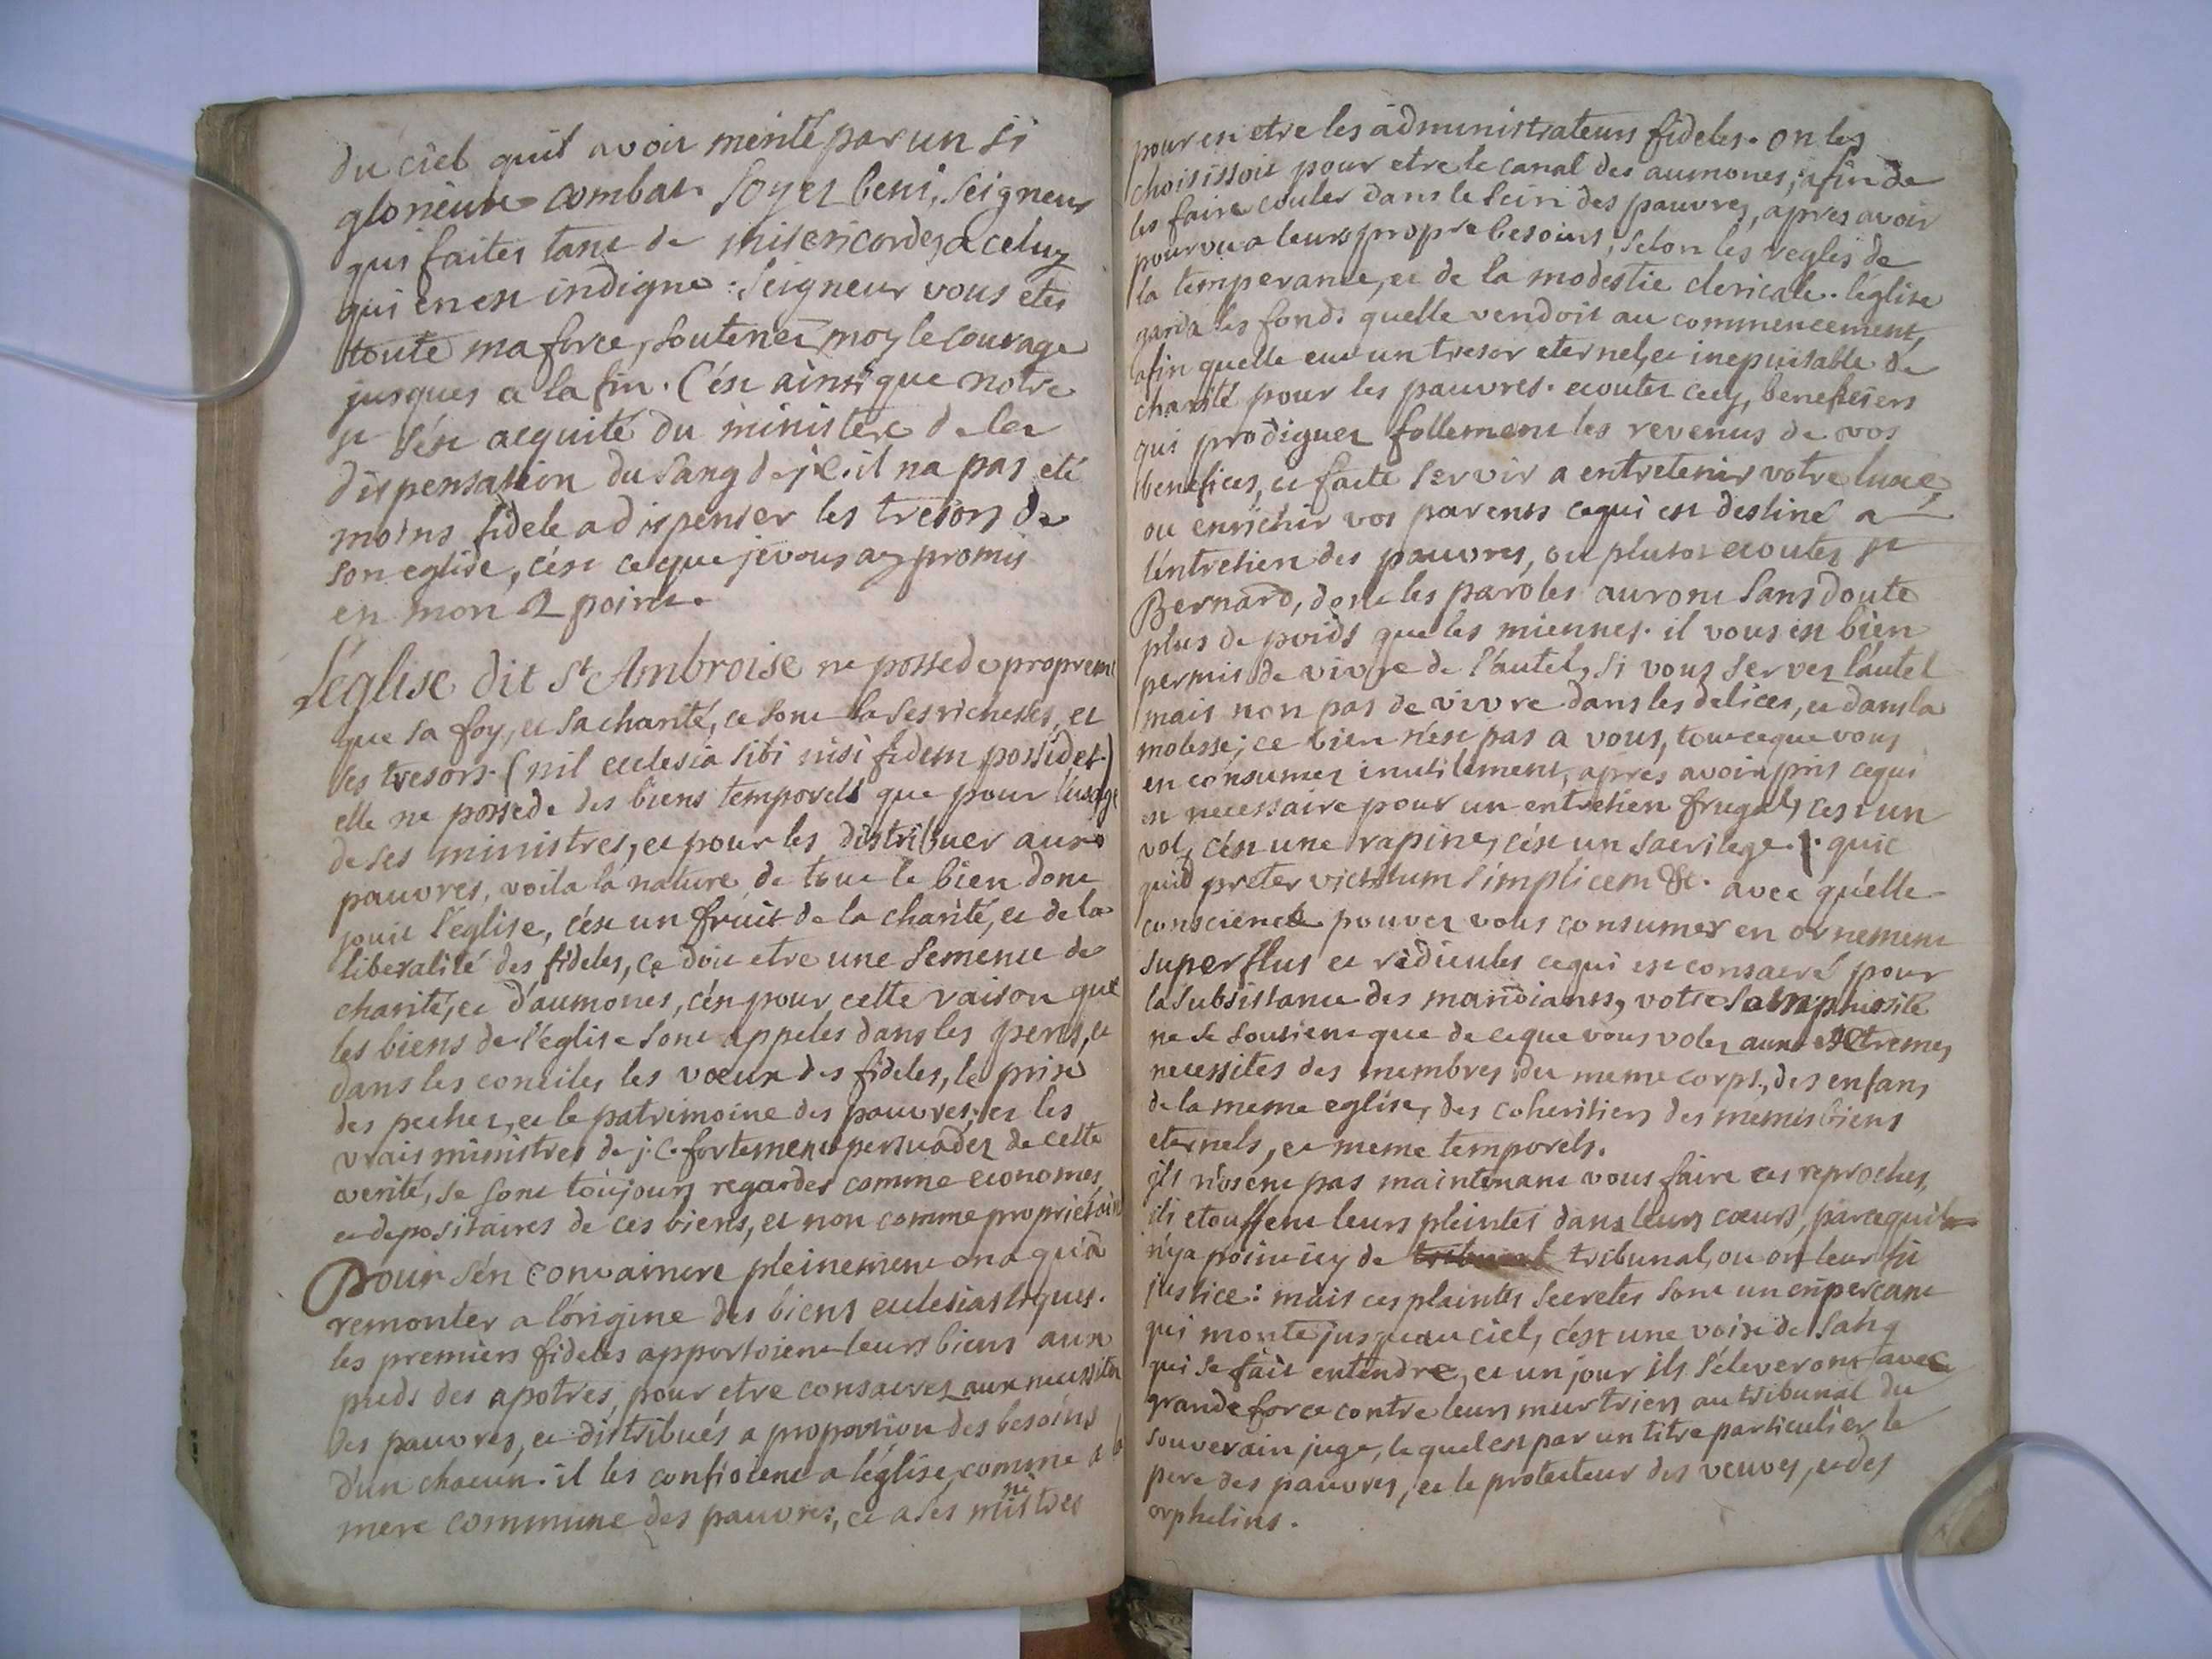 du ciel quil avoit merité par un si
glorieux combat. Soyez beni, seigneur
qui faites tant de misericordes a celuy
qui en est indigne: seigneur vous etes
toute ma force, soutenez moy le courage
jusques a la fin. C'est ainsi que notre
st s'est acquité du ministere de la
dispensation du sang de j.c. il na pas eté
moins fidele a dispenser les tresors de
son eglise, c'est ce que je vous ay promis
en mon 2 point.
L'église dit St Ambroise ne possede proprem.t
que sa foy, et sa charité, ce sont la ses richesses, et
ses tresors. (nil ecclesia sibi nisi fidem possidet.)
elle ne possede des biens temporels que pour l'usage
de ses ministres, et pour les distribuer aux
pauvres, voila la nature de tout le bien dont
jouit l'église, c'est un fruit de la charité, et de la
liberalité des fideles, ce doit etre une semence de
charité, et d'aumones, c'est pour cette raison que
les biens de l'église sont appeles dans les peres, et
dans les conciles les vœux des fideles, le prix
des pechez, et le patrimoine des pauvres, et les
vrais ministres de j.c. fortement persuadez de cette
verité, se sont toujours regardes comme economes,
et depositaires de ces biens, et non comme proprietaires
Pour s'en convaincre pleinement on a qu'a
remonter a l'origine des biens ecclesiastiques.
les premiers fideles apportoient leurs biens aux
pieds des apotres, pour etre consacrez aux necessites
des pauvres, et distribués a proportion des besoins
d'un chacun. il les confioient a l'église, comme a la
mere commune des pauvres, et a ses ministres
pour en etre les administrateurs fideles. on les
choisissoit pour etre le canal des aumones, afin de
les faire couler dans le sein des pauvres, apres avoir
pourvu a leurs propre besoins, selon les regles de
la temperance, et de la modestie clericale. l'église
garda les fonds quelle vendoit au commencement,
afin quelle eut un tresor eternel, et inepuisable de
charité pour les pauvres. ecoutez cecy, beneficiers
qui prodiguez follement les revenus de vos
benefices, et faite servir a entretenir votre luxe,
ou enrichir vos parents cequi est destiné a
l'entretien des pauvres, ou plutot ecoutez st
Bernard, dont les paroles auront sans doute
plus de poids que les miennes. il vous est bien
permis de vivre de l'autel, si vous servez l'autel
mais non pas de vivre dans les delices, et dans la
molesse; ce bien n'est pas a vous, tout ceque vous
en consumez inutilement, apres avoir pris cequi
est necessaire pour un entretien frugal, cest un
vol, c'est une rapine, c'est un sacrilege. quic
quid preter victum simplicem &c. avec qu'elle
conscience pouvez vous consumer en ornement
superflus et ridicules cequi est consacré pour
la subsistance des mandiants, votre somptuosité
ne se soutient que de ceque vous volez aux extremes
necessites des membres du meme corps, des enfans
de la meme eglise, des coheritiers des memes biens
eternels, et meme temporels.
ils n'osent pas maintenant vous faire ces reproches,
ils etouffent leurs pleintes dans leurs cœurs, parcequil
n'y a point icy de tribunal tribunal, ou on leur fit
justice: mais ces plaintes secretes sont un cri perçant
qui monte jusqueau ciel, c'est une voix de sang
qui se fait entendre, et un jour ils s'éleveront avec
grande force contre leurs murtriers au tribunal du
souverain juge, lequel est par un titre particulier le
pere des pauvres, et le protecteur des veuves, et des
orphelins.